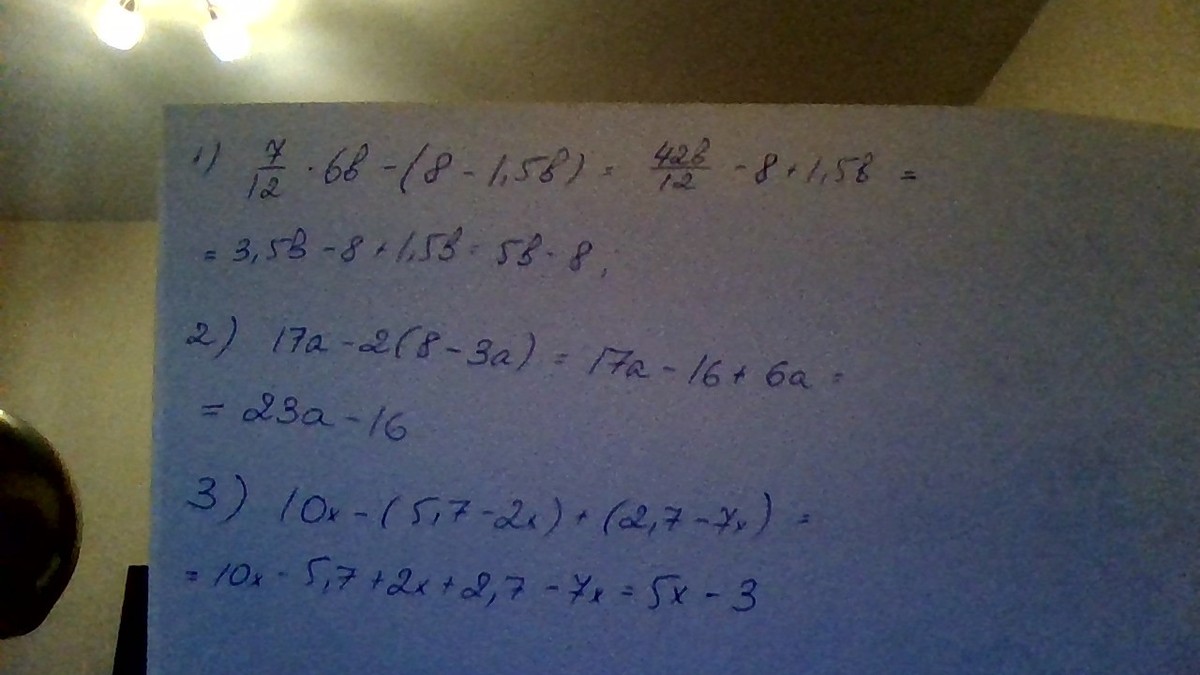 1) 7/12 · 6b - (8 - 1,5b) = 42b/12 - 8 + 1,5b =
= 3,5b - 8 + 1,5b = 5b - 8;
2) 17a - 2(8 - 3a) = 17a - 16 + 6a =
= 23a - 16
3) 10x - (5,7 - 2x) + (2,7 - 7x) =
= 10x - 5,7 + 2x + 2,7 - 7x = 5x - 3